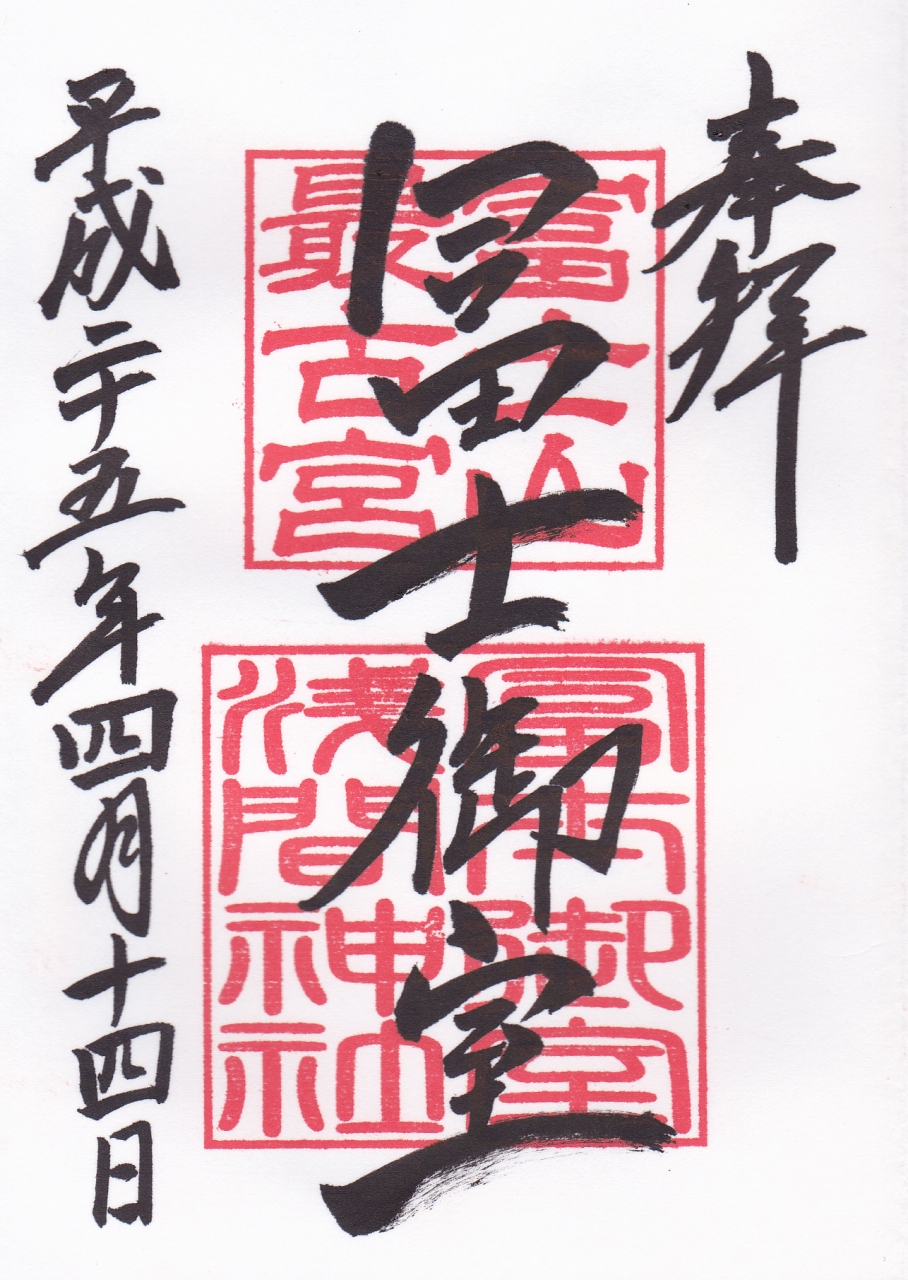 奉拝
冨士御室
富士山
最古宮
冨士御室
浅間神社
平成二十五年四月十四日